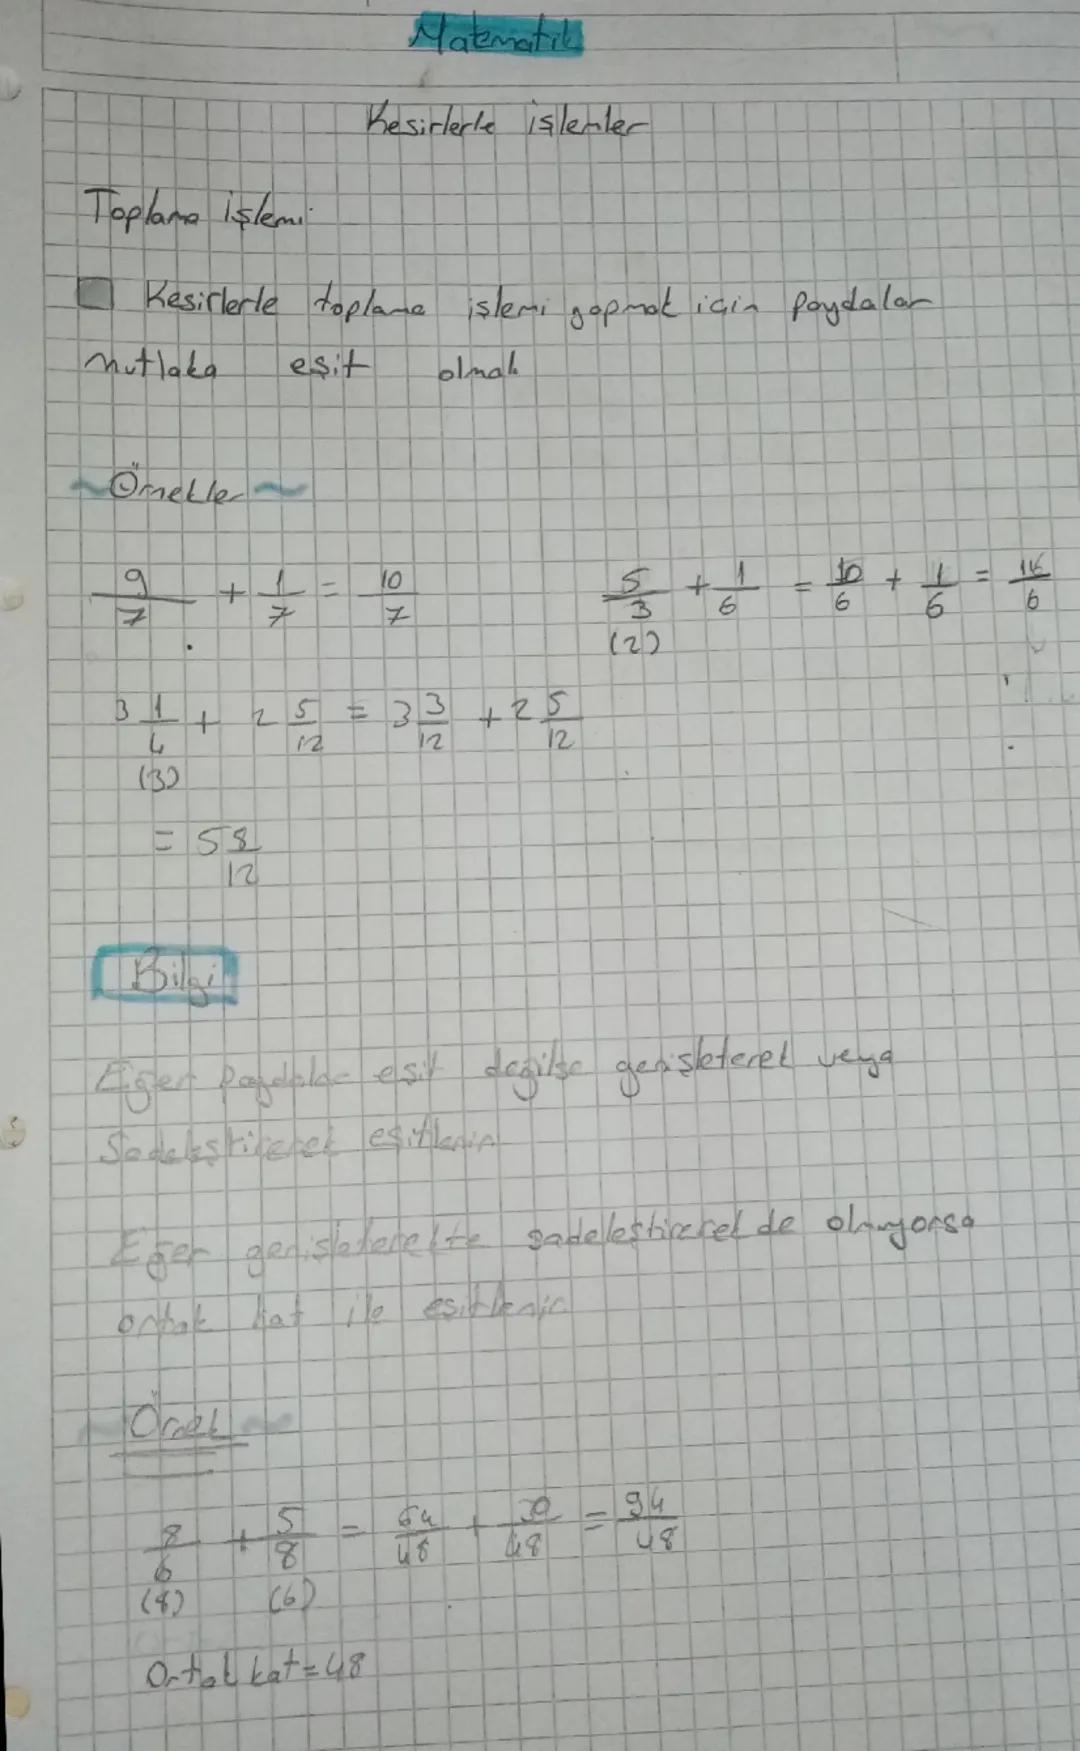 Matematik
Kesirlerle işlemler
Toplama işlemi
Kesirlerle toplama işlemi yapmak için paydalar
mutlaka eşit olmalı
~Örnekler~
9/7 + 1/7 = 10/7
5/3 + 1/6 = 10/6 + 1/6 =
(2)
3 1/4 + 2 5/12 = 3 3/12 + 2 5/12
(3)
= 5 8/12
Bilgi
Eğer paydalar eşit değilse genişleterek veya
Sadeleştirerek eşitlenir
Eğer genişleterekte sadeleştirerek de olmuyorsa
ortak kat ile eşitlenir
~Örnek~
8/6 + 5/8 = 64/48 + 30/48 = 94/48
(8) (6)
Ortak kat = 48